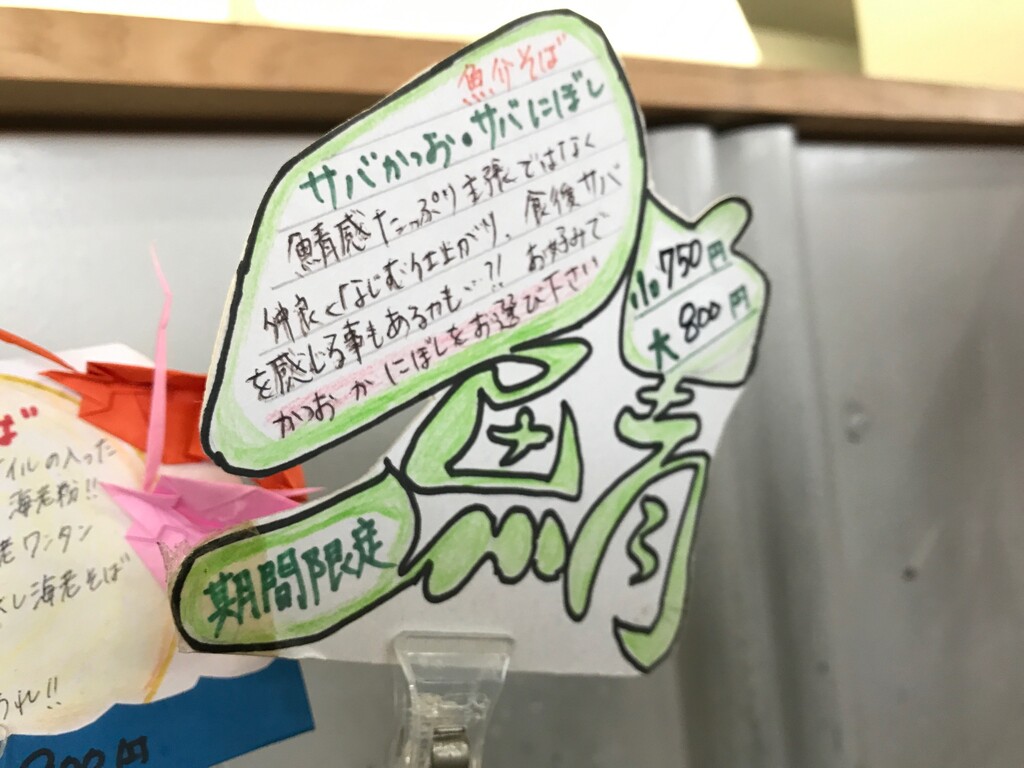 魚介そば
サバかつお・サバにぼし
鯖感たっぷり主張ではなく
仲良くなじむ仕上がり、食後サバ
を感じる事もあるかも…?!お好みで
かつおかにぼしをお選び下さい
小750円
大800円
鯖
期間限定
ば
イルの入った
海老粉!!
老ワンタン
し海老そば
うれ!!
900円